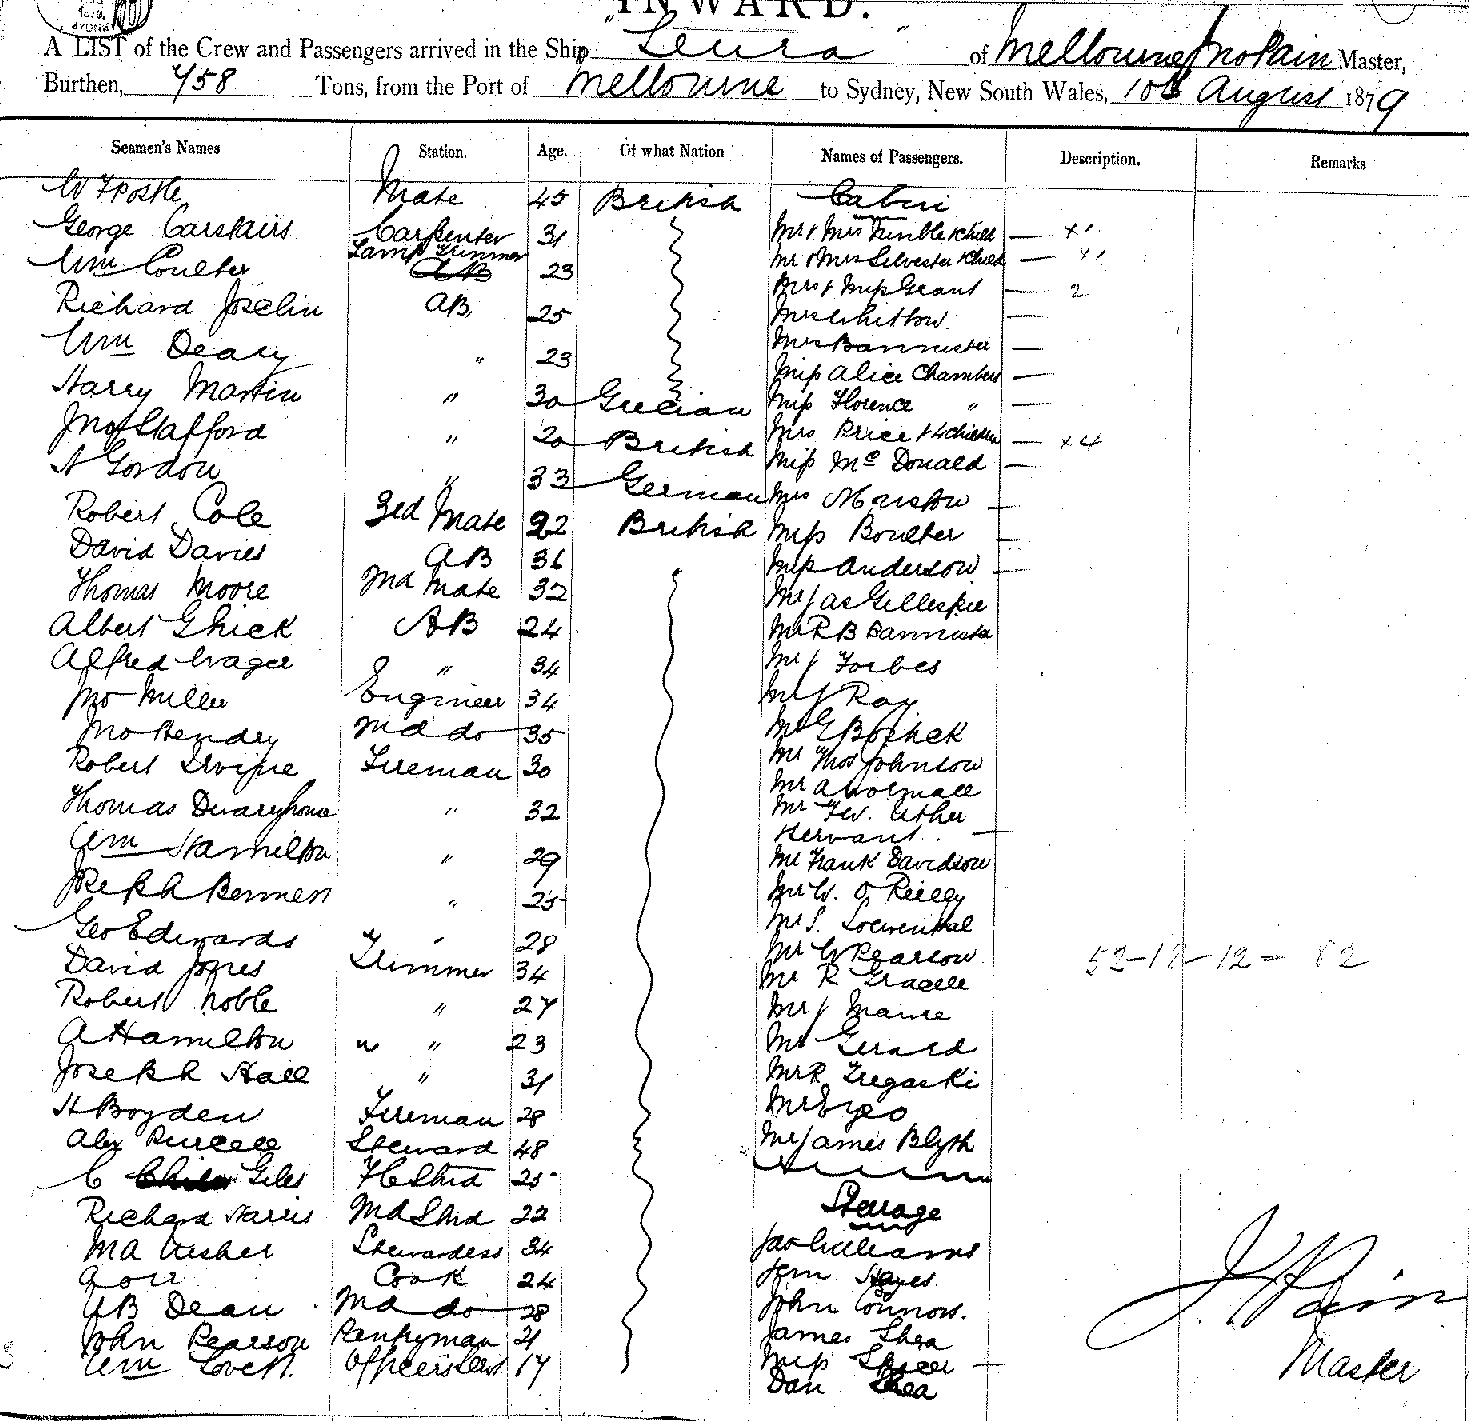 INWARD.
A LIST of the Crew and Passengers arrived in the Ship "Leura" of Melbourne Jno Pain Master,
Burthen, 458 Tons, from the Port of Melbourne to Sydney, New South Wales, 10th August 1879
Seamen's Names Station. Age. Of what Nation Names of Passengers. Description. Remarks
Mate 45 British Cabin
George Carstairs Carpenter 31 Mr & Mrs Trimble & Child
Wm Coulter Lamp Trimmer AB 23 Mr & Mrs Silvester & Child
Richard Joselin AB 25 Mrs & Miss Grant 2
Wm Deary " 23 Mrs Whitlow
Mrs Bannister
Harry Martin " 30 Grecian Miss Alice Chambers
Miss Florence "
Jno Stafford " 20 British Mrs Price & 4 Children x4
A Gordon " 33 German Miss McDonald
Robert Cole 3rd Mate 22 British Mrs
David Davies AB 36 Miss Boulter
Thomas Moore 2nd Mate 32 Miss Anderson
Albert Ghick AB 24 Mr Jas Gillespie
Alfred Wager " 34 Mr R B Bannister
Jno Miller Engineer 34 Mr J Forbes
Jno Hendry 2nd do 35 Mr J Ray
Robert Irvine Fireman 30 Mr G
Thomas " 32 Mr Thos Johnson
Wm Hamilton " 29 Mr A
Joseph " 25 Mr Fw. Usher
Servant
Geo Edwards " 28 Mr Frank Davidson
David Jones Trimmer 34 Mr W. O Reilly
Robert Noble " 27 Mr S. Loewenthal
A Hamilton " 23 Mr W Pearson 52-18-12- 82
Joseph Hall " 31 Mr R
H Boyden Fireman 28 Mr J
Alex Purcell Steward 48 Mr Gerard
C Giles 25 Mr R Tregaski
Richard Harris 2nd Stwd 22 Mr
M A Usher Stewardess 34 Mr James Blyth
Cook 24 Steerage
A B Dean 2nd do 28 Jas Williams
John Pearson Pantryman 21 Jem Hayes
Wm Lovett Officers Servt 17 John Connors.
James Shea
Miss Spicer
Dan Shea
J. Pain
Master